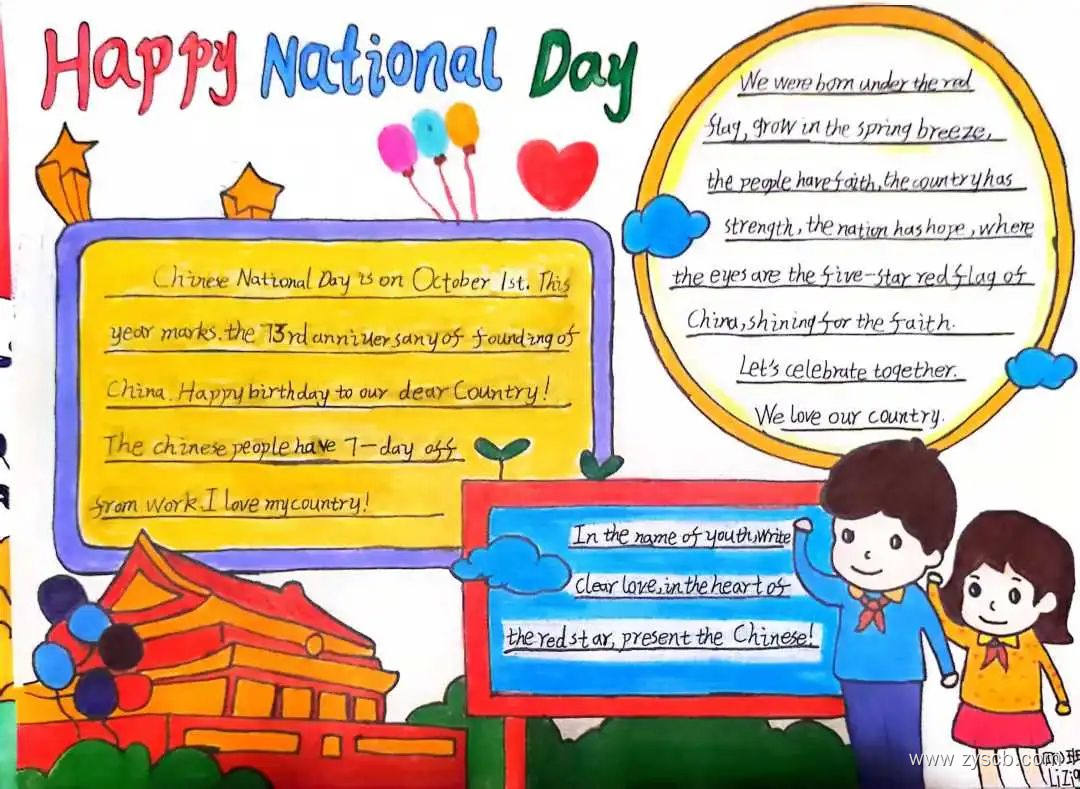 Happy National Day
Chinese National Day is on October 1st. This
year marks. the 73rd anniuersany of founding of
China. Happy birthday to our dear Country!
The chinese people have 7-day off
from work. I love my country!
We were born under the red
flag, grow in the spring breeze,
the people have faith, the country has
strength, the nation has hope, where
the eyes are the five-star red flag of
China, shining for the faith.
Let's celebrate together.
We love our country.
In the name of youth, write
clear love, in the heart of
the red star, present the Chinese!
www.zyscb.com